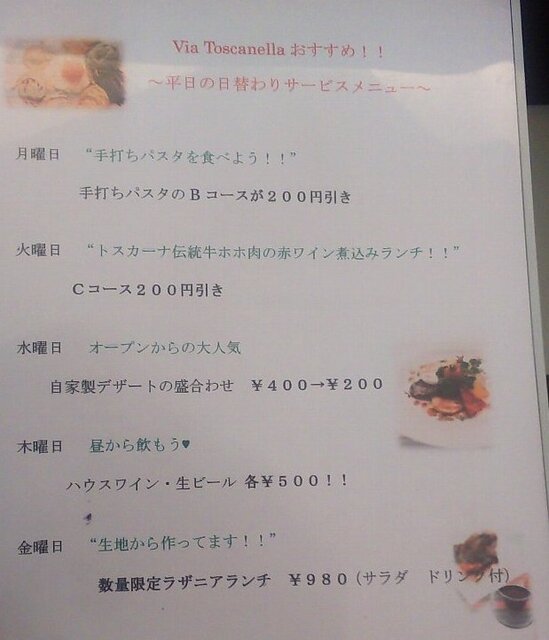 Via Toscanella おすすめ！！
～平日の日替わりサービスメニュー～
月曜日 “手打ちパスタを食べよう！！”
手打ちパスタのBコースが２００円引き
火曜日 “トスカーナ伝統牛ホホ肉の赤ワイン煮込みランチ！！”
Cコース２００円引き
水曜日 オープンからの大人気
自家製デザートの盛合わせ ￥４００→￥２００
木曜日 昼から飲もう♥
ハウスワイン・生ビール 各￥５００！！
金曜日 “生地から作ってます！！”
数量限定ラザニアランチ ￥９８０（サラダ ドリンク付）